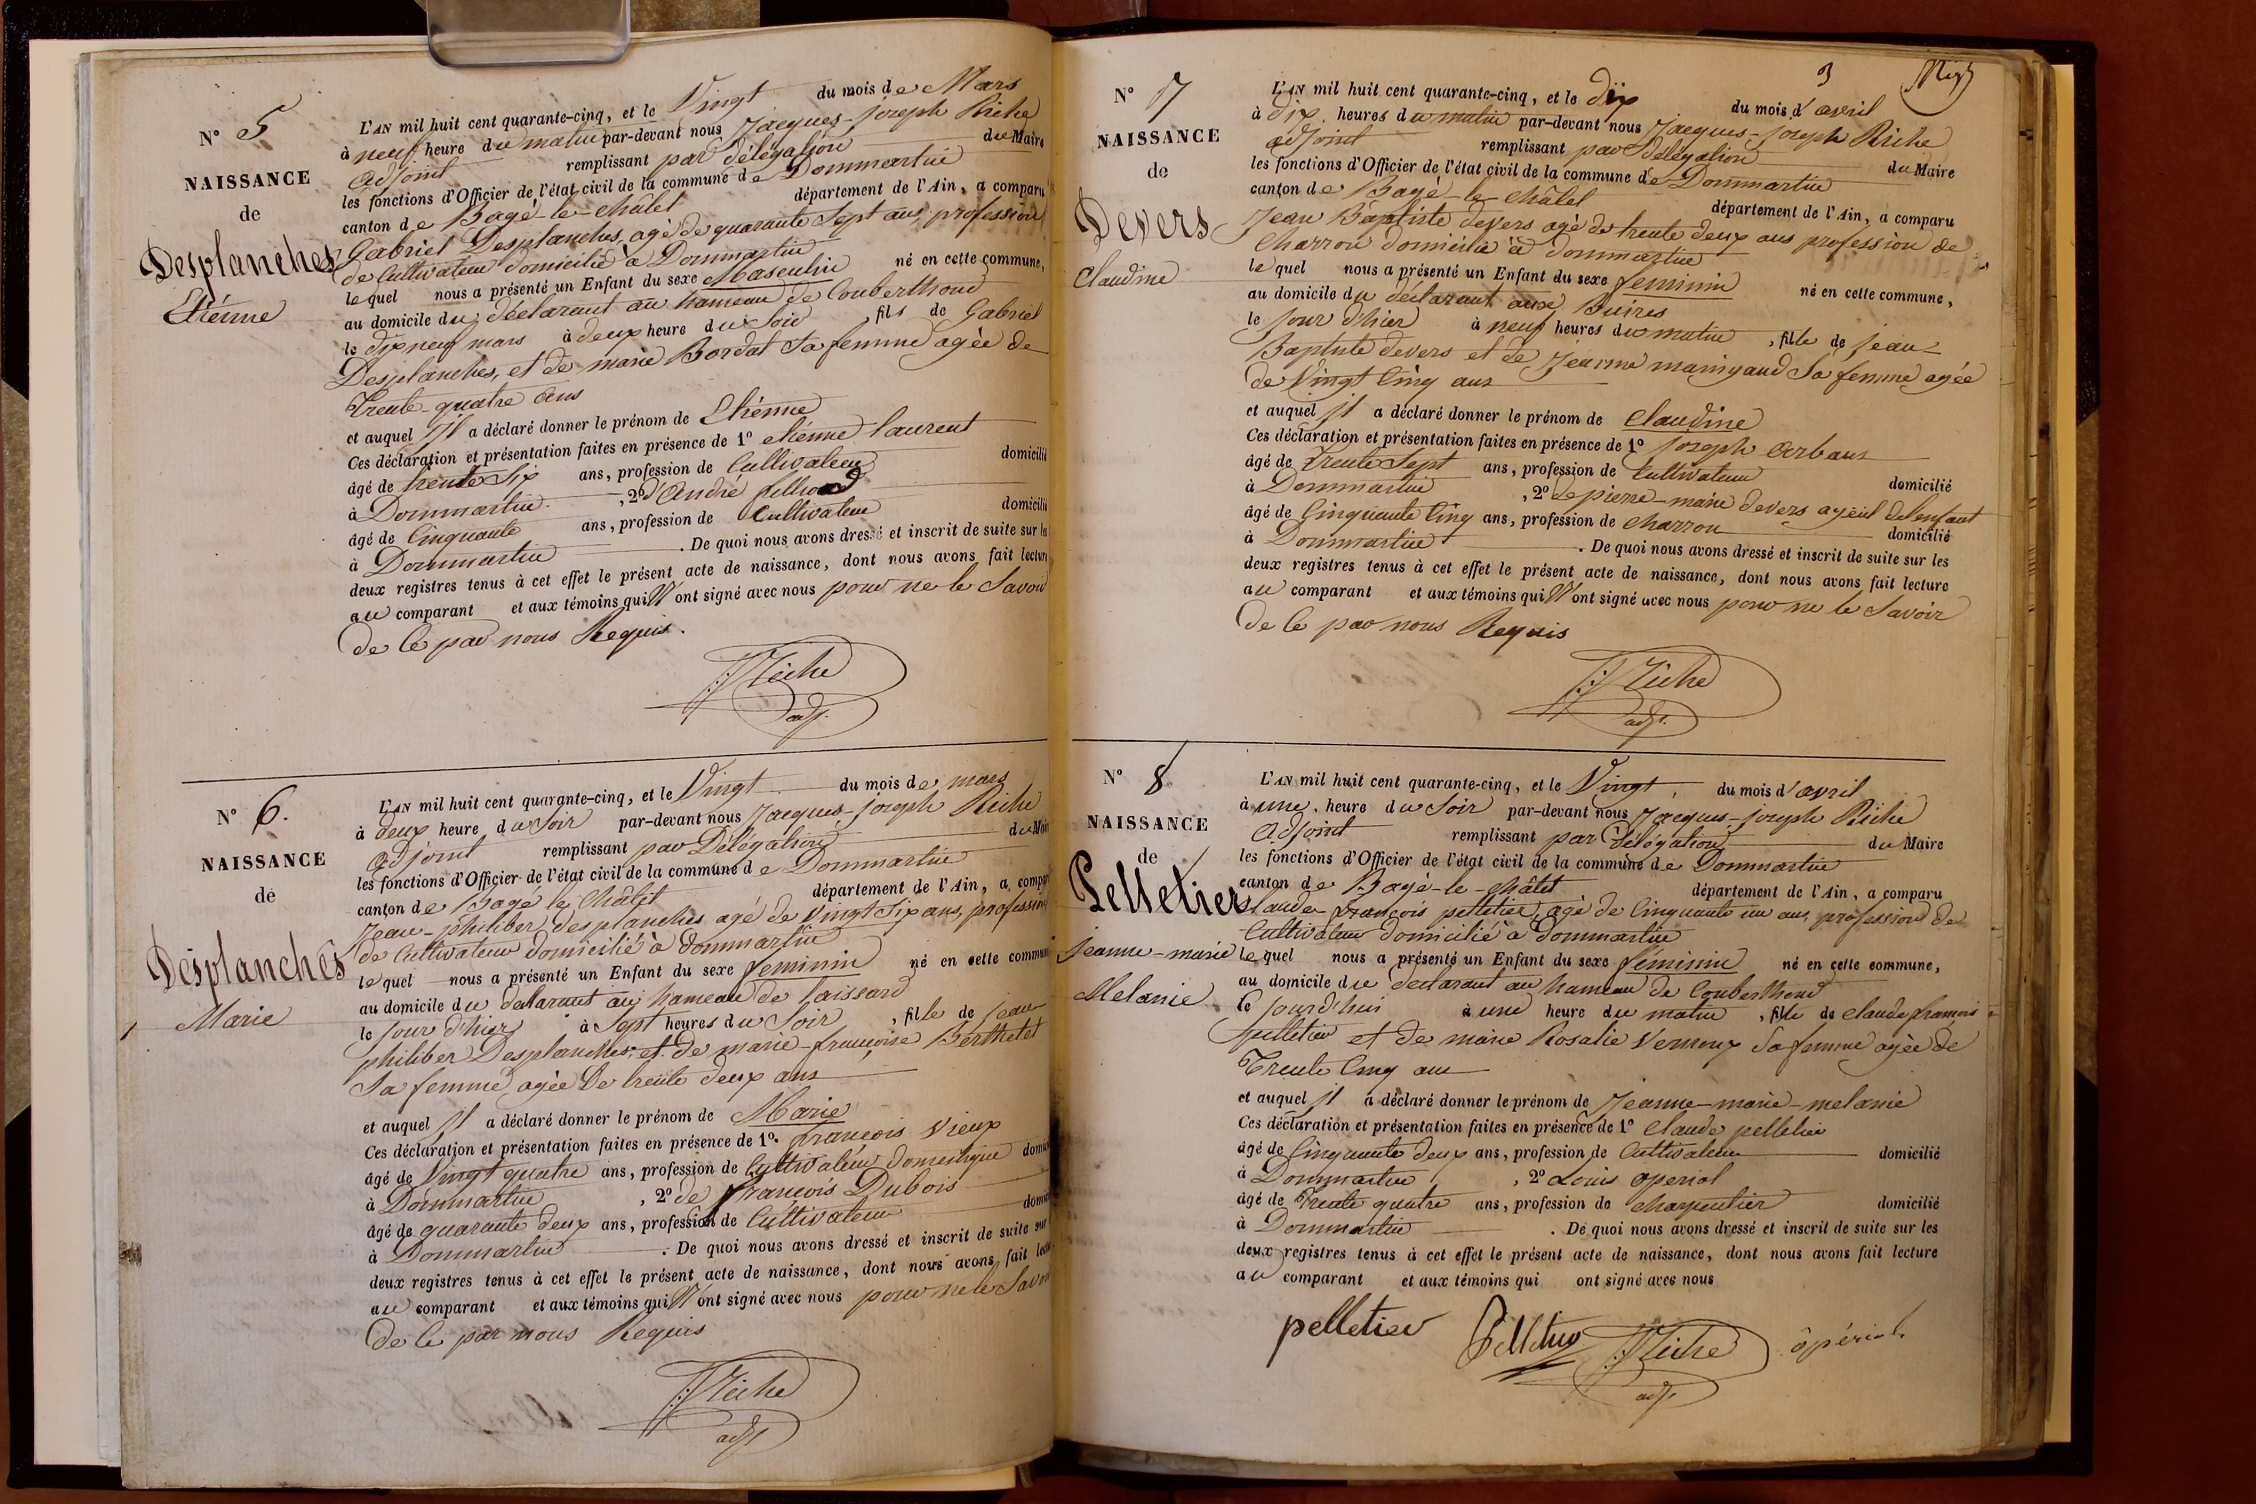 N° 5
NAISSANCE
de
Desplanches
Etiénne
L'AN mil huit cent quarante-cinq, et le Vingt du mois de Mars
à neuf heure du matin par-devant nous Jacques-joseph Riche
adjoint remplissant par délégation du Maire
les fonctions d'Officier de l'état civil de la commune de Dommartin
canton de Bagé-le-châtel département de l'Ain, a comparu
Gabriel Desplanches, agé de quarante Sept ans, profession
de Cultivateur domicilié à Dommartin
lequel nous a présenté un Enfant du sexe Masculin né en cette commune,
au domicile du déclarant au hameau de Couberthoud
le dixneuf mars à deux heure du Soir, fils de Gabriel
Desplanches, et de marie Bordat Sa femme agée de
Trente-quatre ans
et auquel jl a déclaré donner le prénom de Etiénne
Ces déclaration et présentation faites en présence de 1° etiénne laurent
âgé de trente Six ans, profession de Cultivateur domicilié
à Dommartin, 2° d'André
âgé de Cinquante ans, profession de Cultivateur domicilié
à Dommartin. De quoi nous avons dressé et inscrit de suite sur les
deux registres tenus à cet effet le présent acte de naissance, dont nous avons fait lecture
au comparant et aux témoins qui N'ont signé avec nous pour ne le Savoir
de Ce par nous Requis.
JJRiche
adj.
N° 6.
NAISSANCE
de
Desplanches
Marie
L'AN mil huit cent quarante-cinq, et le Vingt du mois de mars
à deux heure du Soir par-devant nous Jacques-joseph Riche
adjoint remplissant par Délégation du Maire
les fonctions d'Officier de l'état civil de la commune de Dommartin
canton de Bagé le Châtel département de l'Ain, a comparu
Jean-philiber Desplanches agé de Vingt Six ans, profession
de Cultivateur domicilié à Dommartin
lequel nous a présenté un Enfant du sexe feminin né en cette commune
au domicile du dalarant au hameau de laissard
le jour d'hier à Sept heures du Soir, fille de jean
philiber Desplanches, et de marie-françoise Berthelet
Sa femme agée De trente deux ans
et auquel jl a déclaré donner le prénom de Marie
Ces déclaration et présentation faites en présence de 1° françois Vieux
âgé de Vingt quatre ans, profession de Cultivateur domestique domicilié
à Dommartin, 2° de françois Dubois
âgé de quarante deux ans, profession de Cultivateur domicilié
à Dommartin. De quoi nous avons dressé et inscrit de suite sur
deux registres tenus à cet effet le présent acte de naissance, dont nous avons fait lecture
au comparant et aux témoins qui N'ont signé avec nous pour ne le Savoir
de Ce par nous Requis
JJRiche
adj
3
N° 7
NAISSANCE
de
Devers
Claudine
L'AN mil huit cent quarante-cinq, et le dix du mois d'avril
à dix heures du matin par-devant nous Jacques-joseph Riche
adjoint remplissant par Délégation du Maire
les fonctions d'Officier de l'état civil de la commune de Dommartin
canton de Bagé-le-châtel département de l'Ain, a comparu
Jean Baptiste devers agé de trente deux ans profession de
Charron domicilié à dommartin
lequel nous a présenté un Enfant du sexe feminin né en cette commune,
au domicile du déclarant aux Buires
le jour d'hier à neuf heures du matin, fille de jean
Baptiste devers et de jeanne maingaud Sa femme agée
de Vingt Cinq ans
et auquel jl a déclaré donner le prénom de Claudine
Ces déclaration et présentation faites en présence de 1° joseph Arbans
âgé de Trente Sept ans, profession de Cultivateur domicilié
à Dommartin, 2° de pierre-marie devers ayeul de l'enfant
âgé de Cinquante Cinq ans, profession de Charron domicilié
à Dommartin. De quoi nous avons dressé et inscrit de suite sur les
deux registres tenus à cet effet le présent acte de naissance, dont nous avons fait lecture
au comparant et aux témoins qui N'ont signé avec nous pour ne le Savoir
de Ce par nous Requis
JJRiche
adj.
N° 8
NAISSANCE
de
Pelletier
jeanne-marie
Melanie
L'AN mil huit cent quarante-cinq, et le Vingt du mois d'avril
à une heure du Soir par-devant nous Jacques-joseph Riche
Adjoint remplissant par Délégation du Maire
les fonctions d'Officier de l'état civil de la commune de Dommartin
canton de Bagé-le-châtel département de l'Ain, a comparu
Claude-françois pelletier, agé de Cinquante un ans, profession de
Cultivateur domicilié à dommartin
lequel nous a présenté un Enfant du sexe féminin né en cette commune,
au domicile du declarant au hameau de Couberthoud
le jourd'hui à une heure du matin, fille de claude françois
pelletier et de marie Rosalie Vernoux Sa femme agée de
Trente Cinq ans
et auquel jl a déclaré donner le prénom de Jeanne-marie-melanie
Ces déclaration et présentation faites en présence de 1° Claude pelletier
âgé de Cinquante deux ans, profession de Cultivateur domicilié
à Dommartin, 2° Louis operiol
âgé de Trente quatre ans, profession de Charpentier domicilié
à Dommartin. De quoi nous avons dressé et inscrit de suite sur les
deux registres tenus à cet effet le présent acte de naissance, dont nous avons fait lecture
au comparant et aux témoins qui ont signé avec nous
pelletier Pelletier JJRiche
adj.